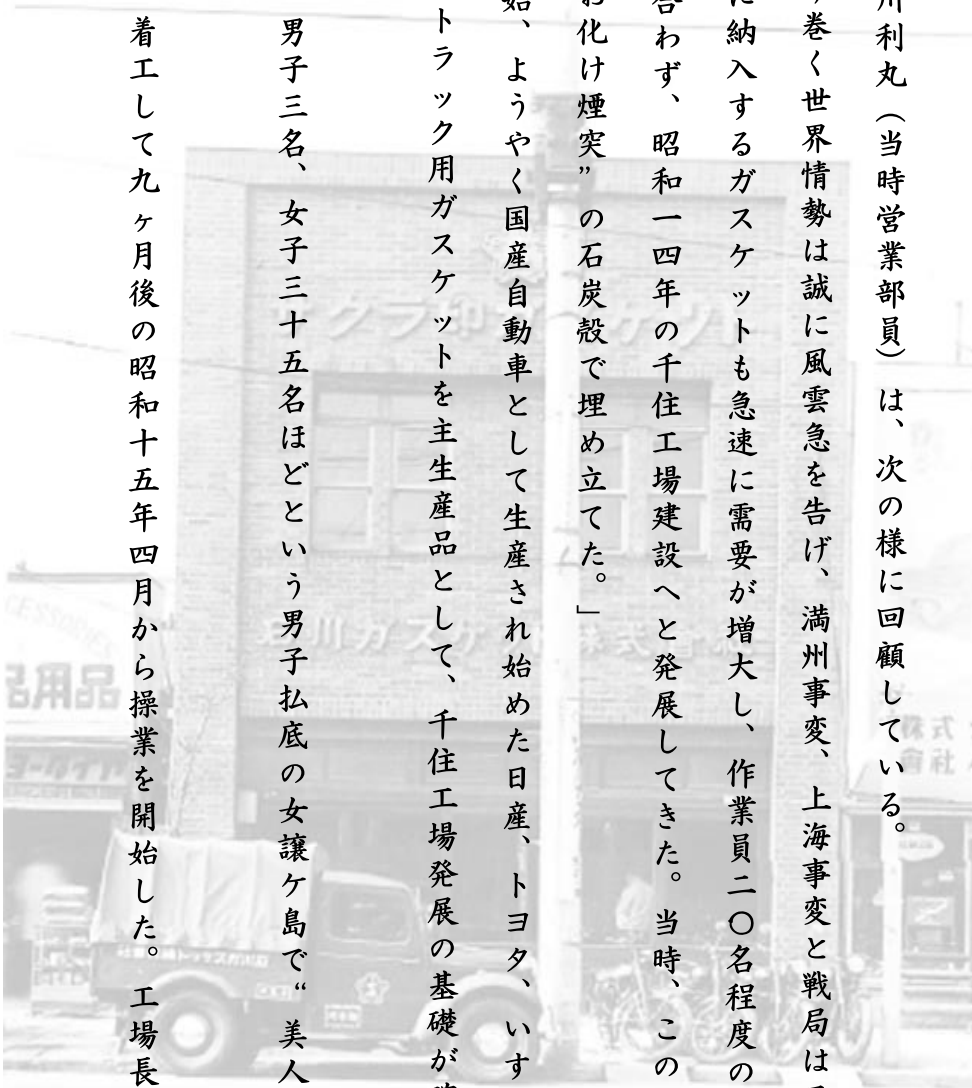 川利丸（当時営業部員）は、次の様に回顧している。
巻く世界情勢は誠に風雲急を告げ、満州事変、上海事変と戦局は
に納入するガスケットも急速に需要が増大し、作業員二〇名程度の
合わず、昭和一四年の千住工場建設へと発展してきた。当時、この
お化け煙突”の石炭殻で埋め立てた。」
始、ようやく国産自動車として生産され始めた日産、トヨタ、いす
トラック用ガスケットを主生産品として、千住工場発展の基礎が
男子三名、女子三十五名ほどという男子払底の女譲ケ島で“美人
着工して九ヶ月後の昭和十五年四月から操業を開始した。工場長
川ガスケ
株式會社
品用品
ヨータイヤ
CESSORIES
株式
會社